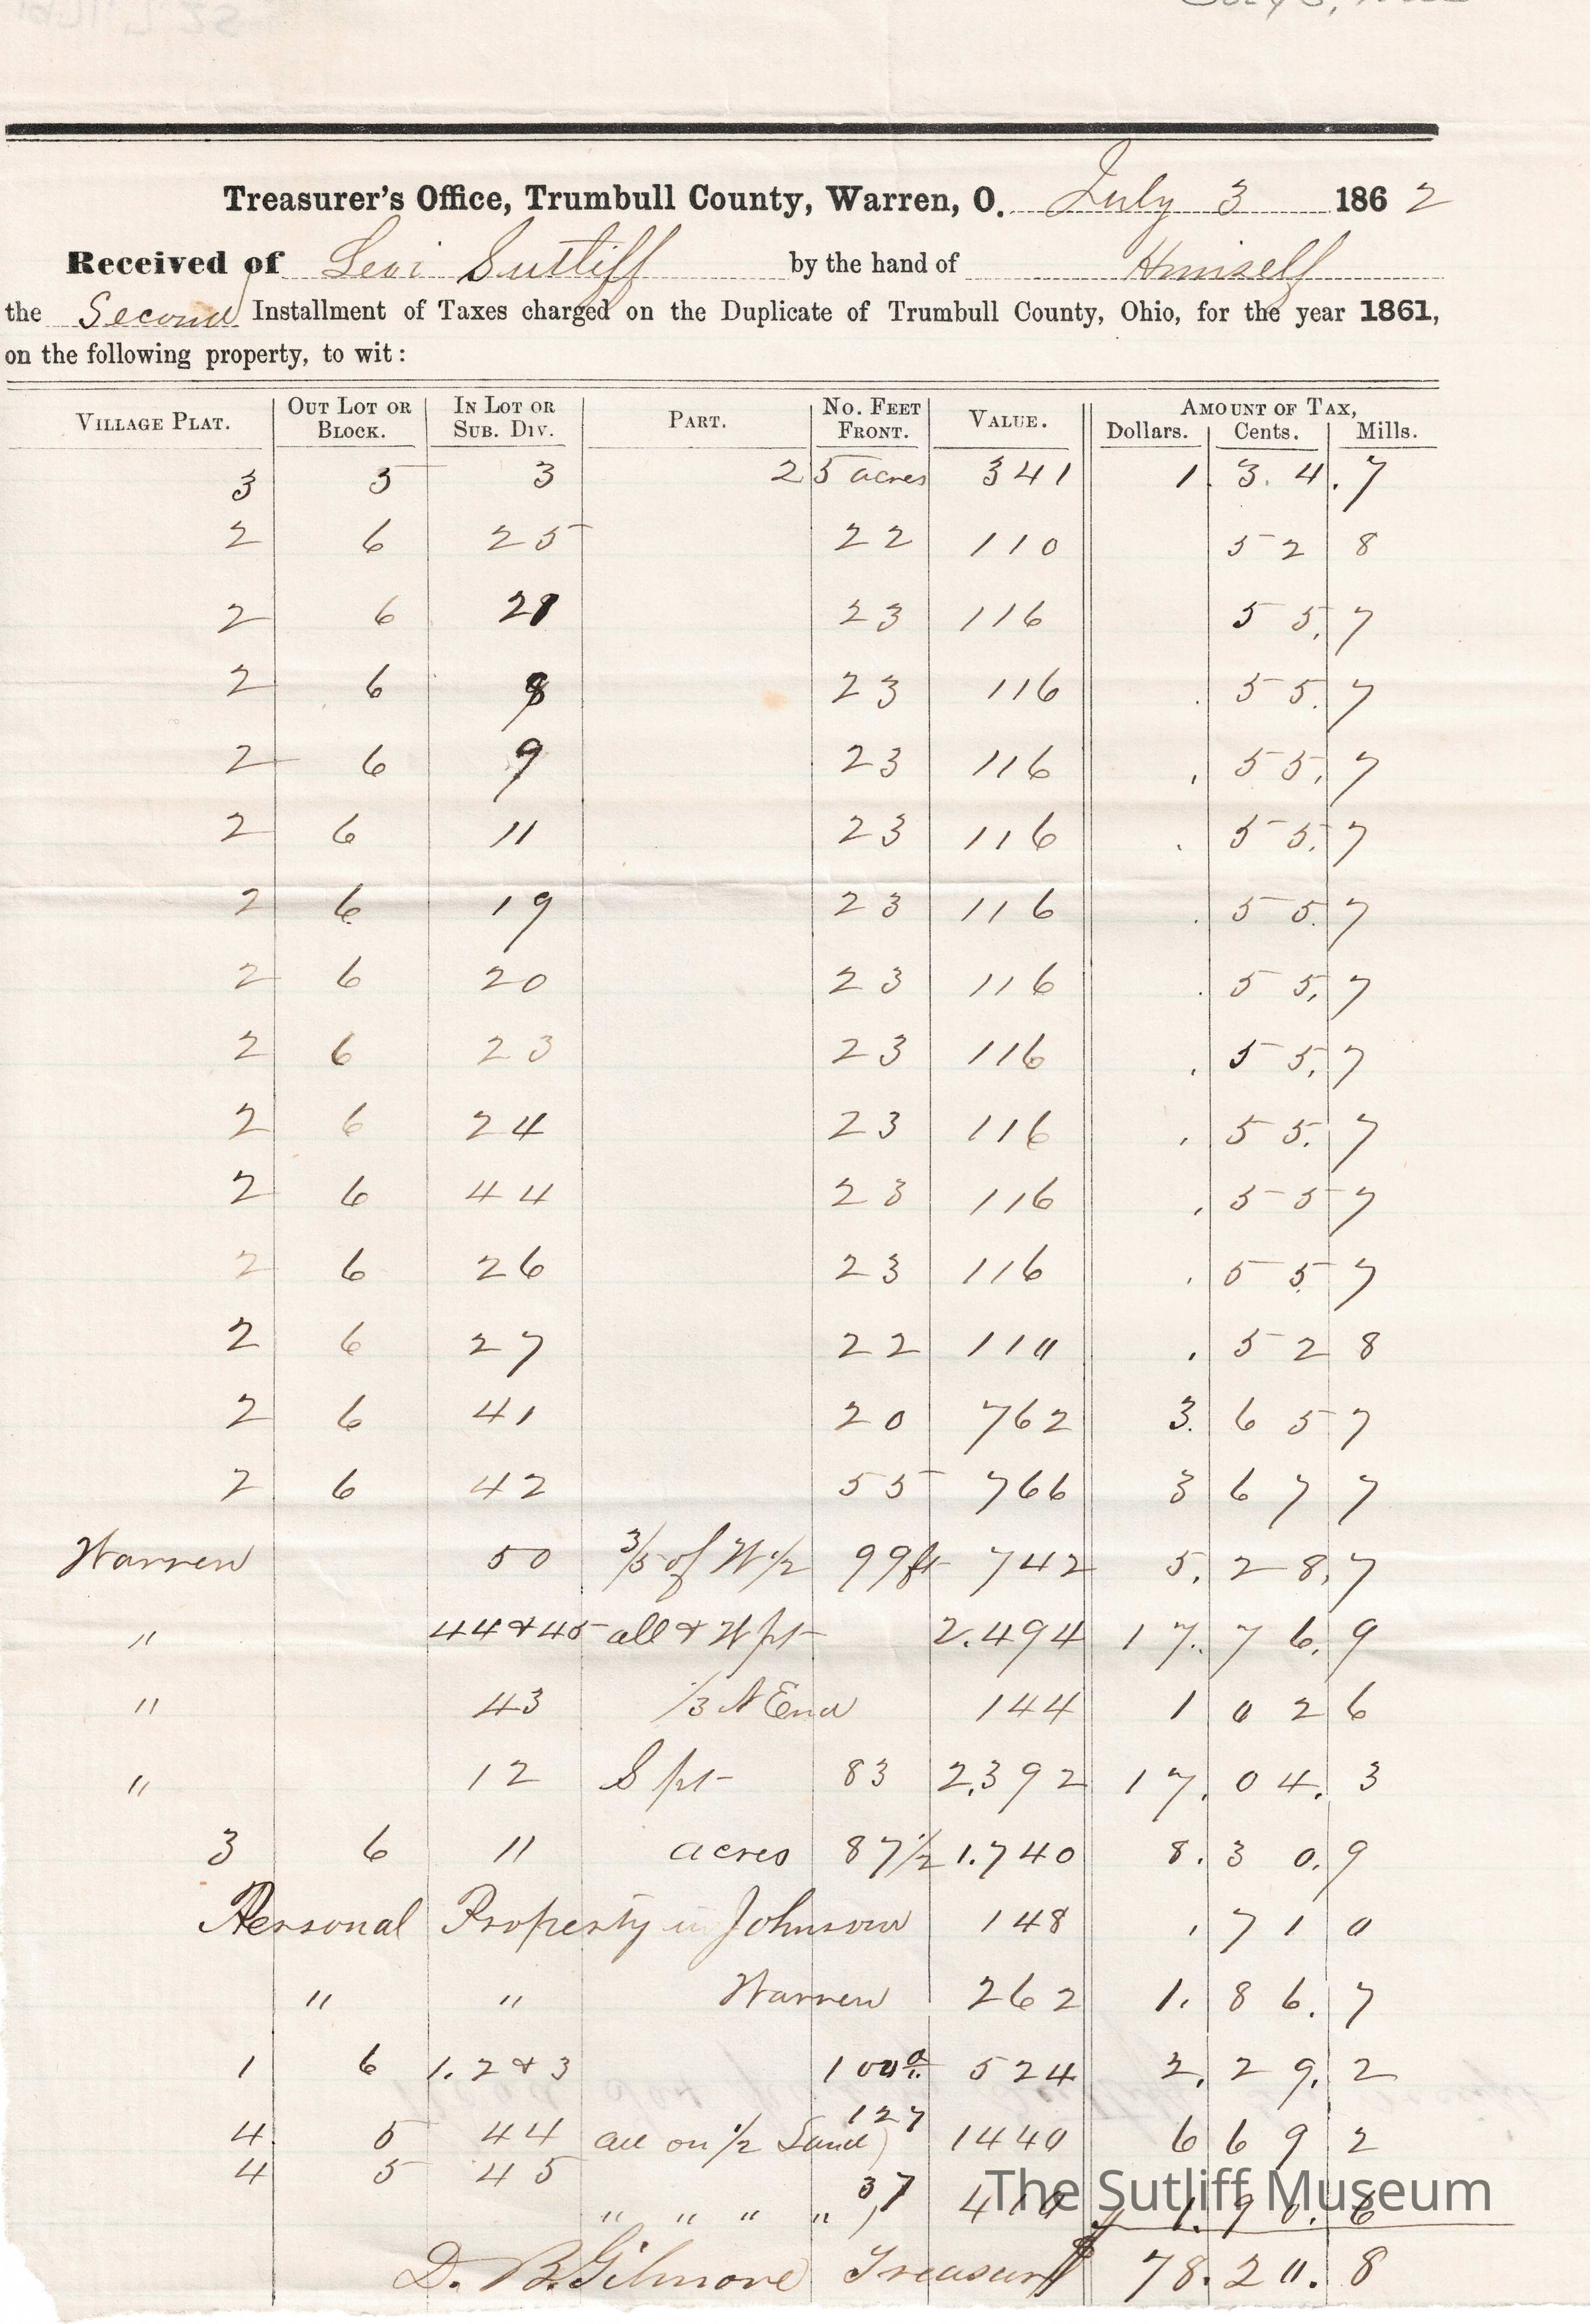 Treasurer's Office, Trumbull County, Warren, O. July 3 1862
Received of Levi Sutliff by the hand of Himself
the Second Installment of Taxes charged on the Duplicate of Trumbull County, Ohio, for the year 1861,
on the following property, to wit:
VILLAGE PLAT. OUT LOT OR BLOCK. IN LOT OR SUB. DIV. PART. NO. FEET FRONT. VALUE. AMOUNT OF TAX, Dollars. Cents. Mills.
3 5 3 25 acres 341 1. 3. 4. 7
2 6 25 22 110 52 8
2 6 23 116 55. 7
2 6 8 23 116 . 55. 7
2 6 9 23 116 . 55. 7
2 6 11 23 116 . 55. 7
2 6 19 23 116 . 55. 7
2 6 20 23 116 . 55. 7
2 6 23 23 116 . 55. 7
2 6 24 23 116 . 55. 7
2 6 44 23 116 . 55 7
2 6 26 23 116 . 55 7
2 6 27 22 110 . 52 8
2 6 41 20 762 3. 65 7
2 6 42 55 766 3 67 7
Warren 50 3/5 of W 1/2 99 ft 742 5. 28. 7
" 44 & 45 all & W pt 2.494 17. 76. 9
" 43 1/3 N End 144 1 02 6
" 12 S pt 83 2,392 17. 04. 3
3 6 11 acres 87 1/2 1.740 8. 30. 9
Personal Property in Johnson 148 . 71 0
" " Warren 262 1. 86. 7
1 6 1. 2 & 3 100 a. 524 2. 29. 2
4 5 44 all on 1/2 Land) 127 1440 6 69 2
4 5 45
" " " " 37 410 1. 90. 6
D. B. Gilmore Treasurer 78. 20. 8
The Sutliff Museum